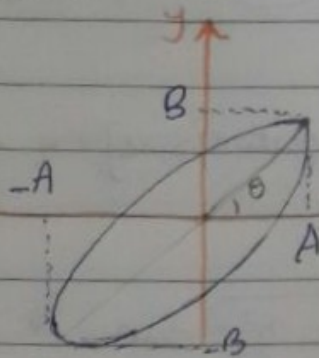 y
B
-A
θ
A
-B